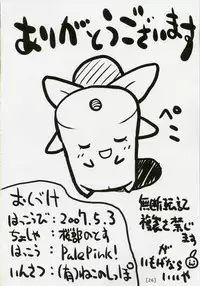 ありがとうございます
ペこ
おくづけ
はっこうび：2007.5.3
ちょしゃ：桜部のとす
はっこう：PalePink!
いんさつ：(有)ねこのしっぽ
無断転記
複写を禁じ
ます
が
いもげなら
いいや